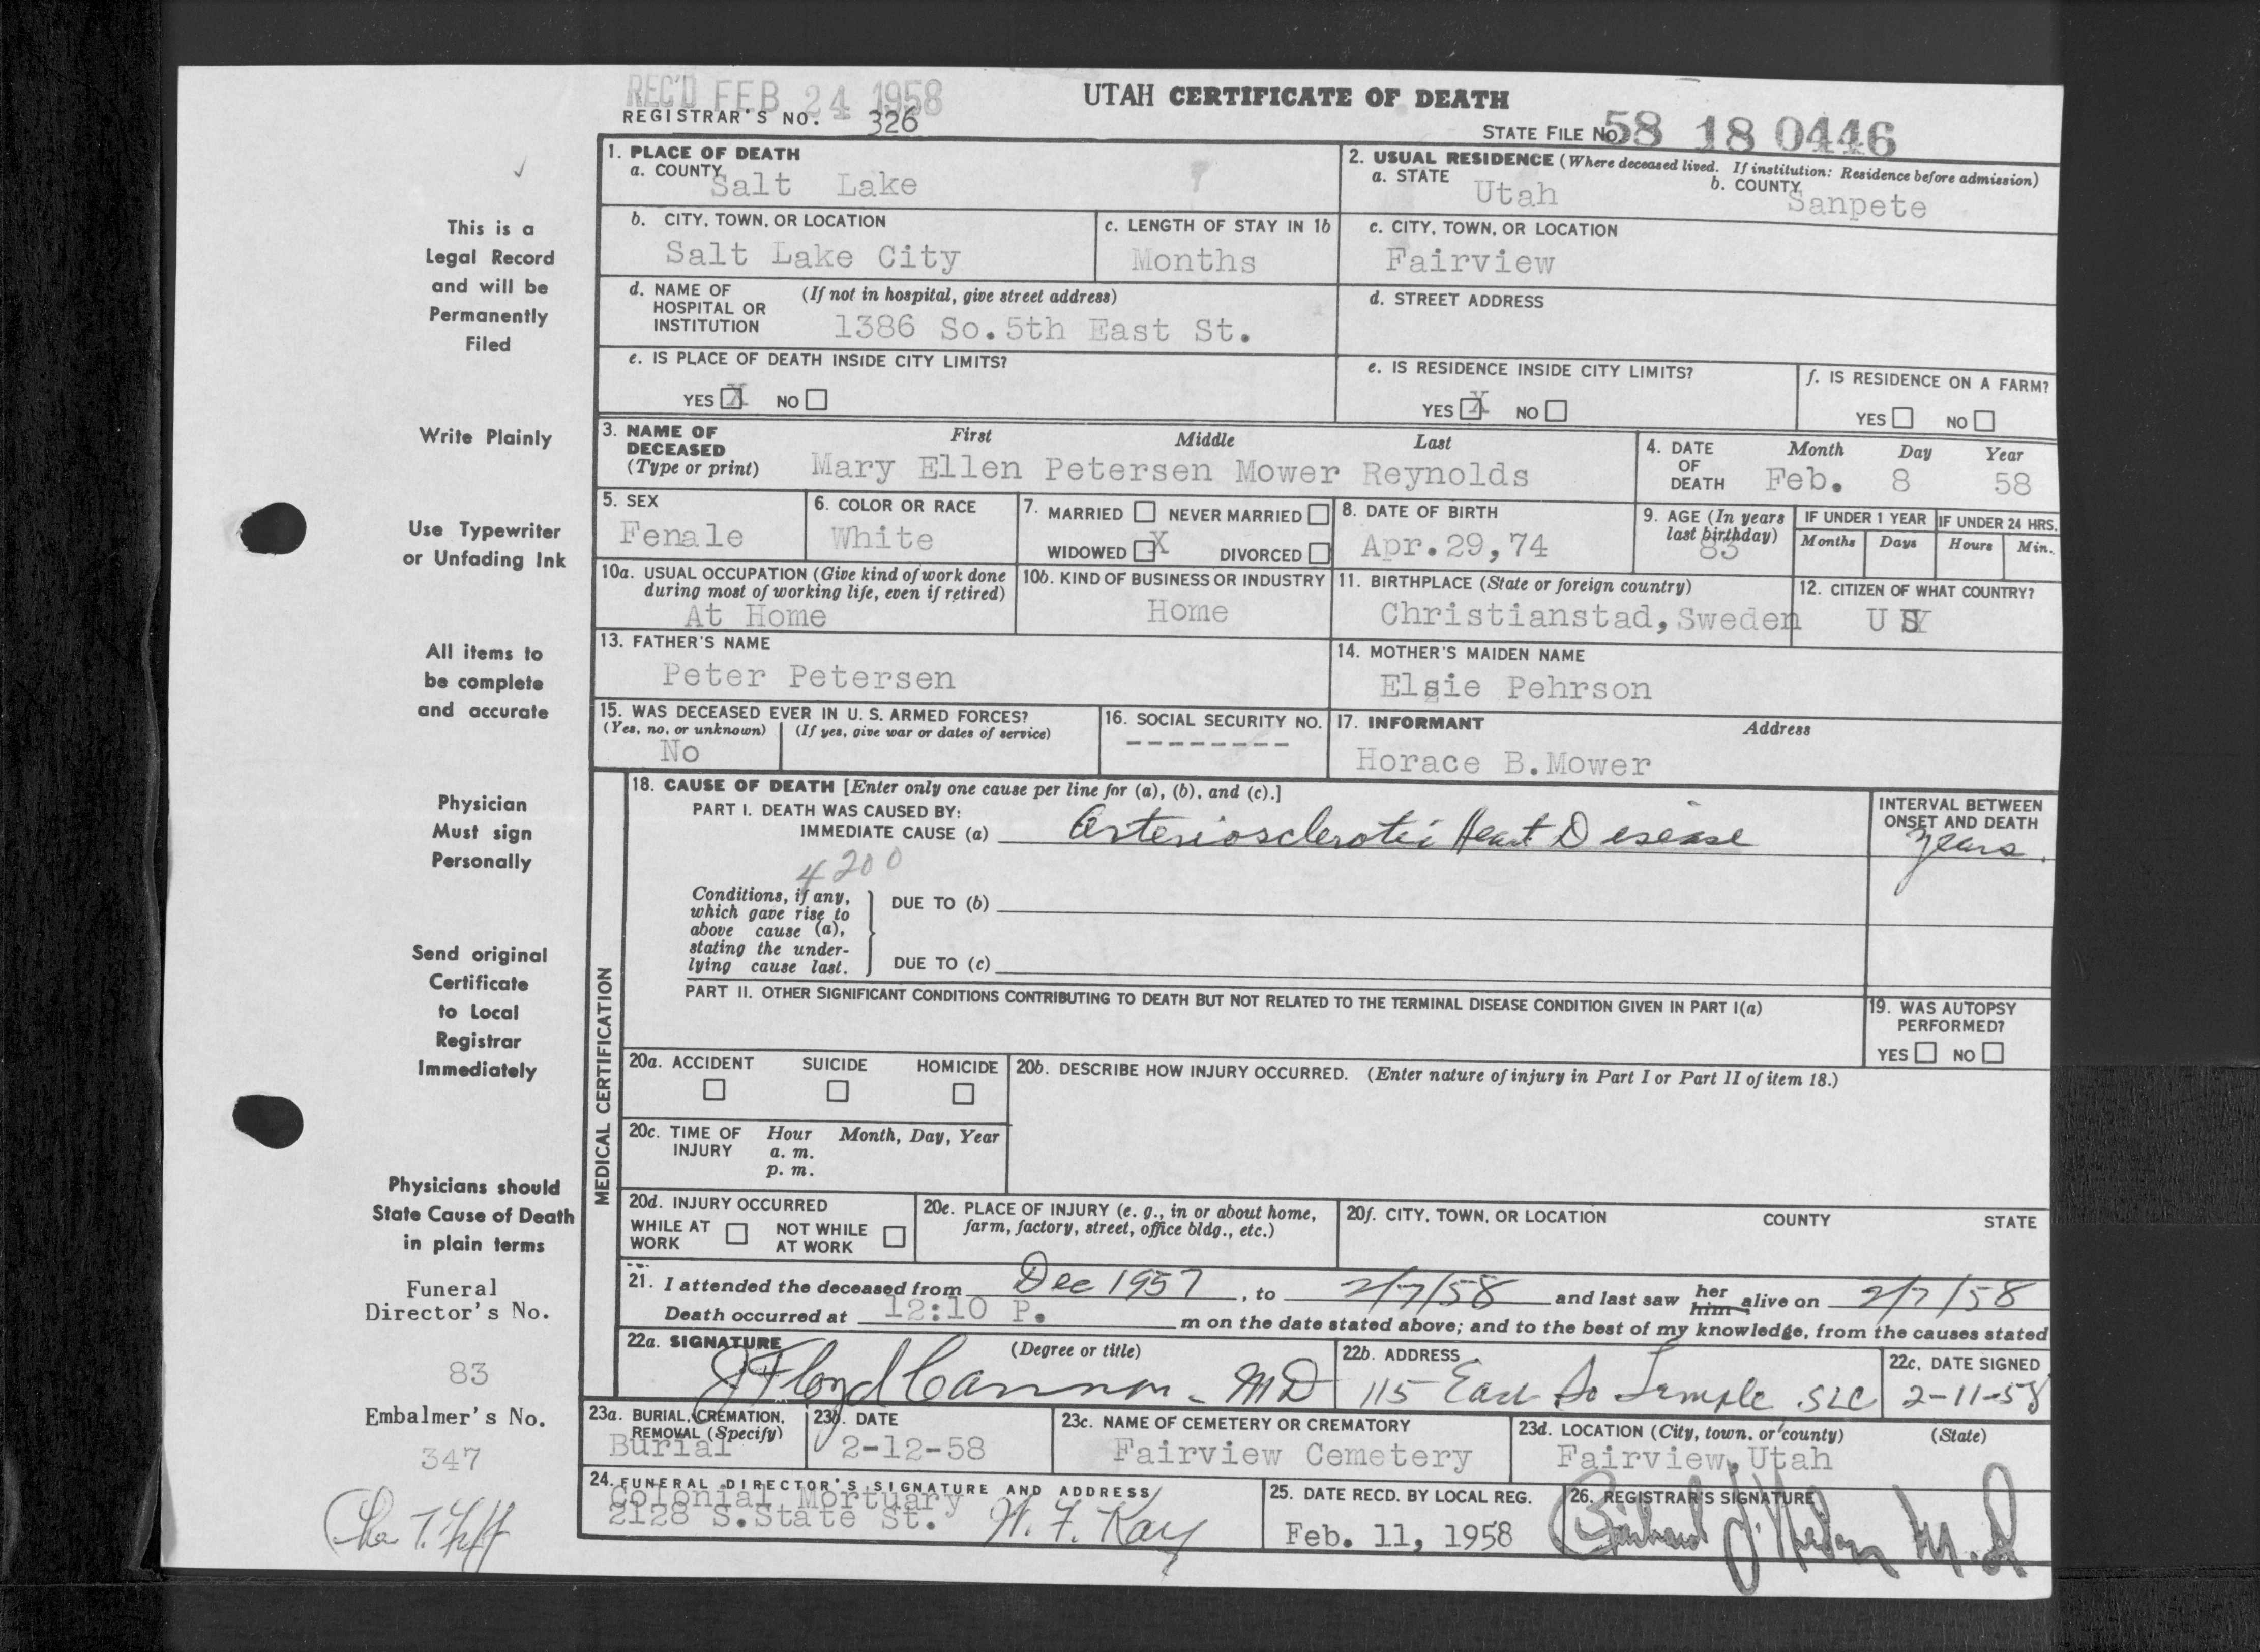 REC'D FEB 24 1958
UTAH CERTIFICATE OF DEATH
REGISTRAR'S NO. 326
STATE FILE No. 58 18 0446
1. PLACE OF DEATH
a. COUNTY
Salt Lake
2. USUAL RESIDENCE (Where deceased lived. If institution: Residence before admission)
a. STATE
Utah
b. COUNTY
Sanpete
This is a
Legal Record
and will be
Permanently
Filed
b. CITY, TOWN, OR LOCATION
Salt Lake City
c. LENGTH OF STAY IN 1b
Months
c. CITY, TOWN, OR LOCATION
Fairview
d. NAME OF
HOSPITAL OR
INSTITUTION
(If not in hospital, give street address)
1386 So.5th East St.
d. STREET ADDRESS
e. IS PLACE OF DEATH INSIDE CITY LIMITS?
YES X NO
e. IS RESIDENCE INSIDE CITY LIMITS?
YES X NO
f. IS RESIDENCE ON A FARM?
YES NO
Write Plainly
3. NAME OF
DECEASED
(Type or print)
First Middle Last
Mary Ellen Petersen Mower Reynolds
4. DATE
OF
DEATH
Month Day Year
Feb. 8 58
Use Typewriter
or Unfading Ink
5. SEX
Fenale
6. COLOR OR RACE
White
7. MARRIED NEVER MARRIED
WIDOWED X DIVORCED
8. DATE OF BIRTH
Apr.29,74
9. AGE (In years
last birthday)
83
IF UNDER 1 YEAR
Months Days
IF UNDER 24 HRS.
Hours Min.
10a. USUAL OCCUPATION (Give kind of work done
during most of working life, even if retired)
At Home
10b. KIND OF BUSINESS OR INDUSTRY
Home
11. BIRTHPLACE (State or foreign country)
Christianstad,Sweden
12. CITIZEN OF WHAT COUNTRY?
U S
All items to
be complete
and accurate
13. FATHER'S NAME
Peter Petersen
14. MOTHER'S MAIDEN NAME
Elsie Pehrson
15. WAS DECEASED EVER IN U. S. ARMED FORCES?
(Yes, no, or unknown) (If yes, give war or dates of service)
No
16. SOCIAL SECURITY NO.
---------
17. INFORMANT Address
Horace B.Mower
Physician
Must sign
Personally
MEDICAL CERTIFICATION
18. CAUSE OF DEATH [Enter only one cause per line for (a), (b), and (c).]
PART I. DEATH WAS CAUSED BY:
IMMEDIATE CAUSE (a) Arteriosclerotic Heart Disease
INTERVAL BETWEEN
ONSET AND DEATH
years.
4200
Conditions, if any,
which gave rise to
above cause (a),
stating the under-
lying cause last.
DUE TO (b)
DUE TO (c)
Send original
Certificate
to Local
Registrar
Immediately
PART II. OTHER SIGNIFICANT CONDITIONS CONTRIBUTING TO DEATH BUT NOT RELATED TO THE TERMINAL DISEASE CONDITION GIVEN IN PART I(a)
19. WAS AUTOPSY
PERFORMED?
YES NO
20a. ACCIDENT SUICIDE HOMICIDE
20b. DESCRIBE HOW INJURY OCCURRED. (Enter nature of injury in Part I or Part II of item 18.)
20c. TIME OF
INJURY
Hour Month, Day, Year
a. m.
p. m.
Physicians should
State Cause of Death
in plain terms
20d. INJURY OCCURRED
WHILE AT
WORK
NOT WHILE
AT WORK
20e. PLACE OF INJURY (e. g., in or about home,
farm, factory, street, office bldg., etc.)
20f. CITY, TOWN, OR LOCATION COUNTY STATE
21. I attended the deceased from Dec 1957, to 2/7/58 and last saw her him alive on 2/7/58
Death occurred at 12:10 P. m on the date stated above; and to the best of my knowledge, from the causes stated
Funeral
Director's No.
83
22a. SIGNATURE (Degree or title)
J Floyd Cannon - MD
22b. ADDRESS
115 East So Temple SLC
22c. DATE SIGNED
2-11-58
Embalmer's No.
347
23a. BURIAL, CREMATION,
REMOVAL (Specify)
Burial
23b. DATE
2-12-58
23c. NAME OF CEMETERY OR CREMATORY
Fairview Cemetery
23d. LOCATION (City, town, or county) (State)
Fairview, Utah
24. FUNERAL DIRECTOR'S SIGNATURE AND ADDRESS
Colonial Mortuary
2128 S.State St. W. F. Kay
25. DATE RECD. BY LOCAL REG.
Feb. 11, 1958
26. REGISTRAR'S SIGNATURE
M.D